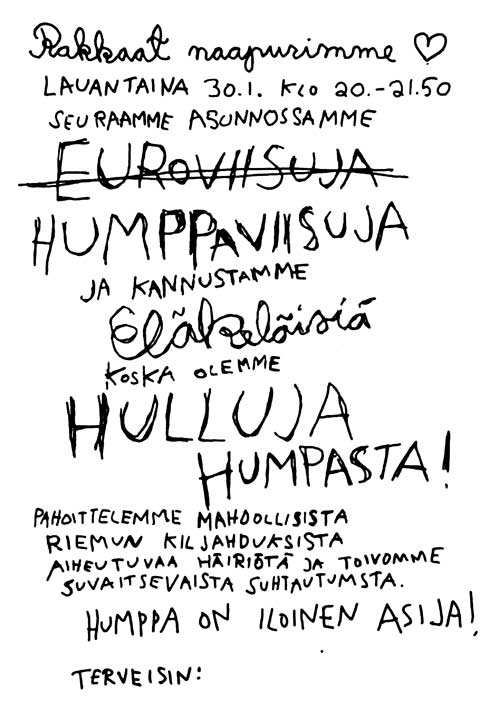 Rakkaat naapurimme ♡
LAUANTAINA 30.1. KLO 20.-21.50
SEURAAMME ASUNNOSSAMME
EUROVIISUJA
HUMPPAVIISUJA
JA KANNUSTAMME
Eläkeläisiä
KOSKA OLEMME
HULLUJA
HUMPASTA!
PAHOITTELEMME MAHDOLLISISTA
RIEMUN KILJAHDUKSISTA
AIHEUTUVAA HÄIRIÖTÄ JA TOIVOMME
SUVAITSEVAISTA SUHTAUTUMSTA.
HUMPPA ON ILOINEN ASIJA!
TERVEISIN: